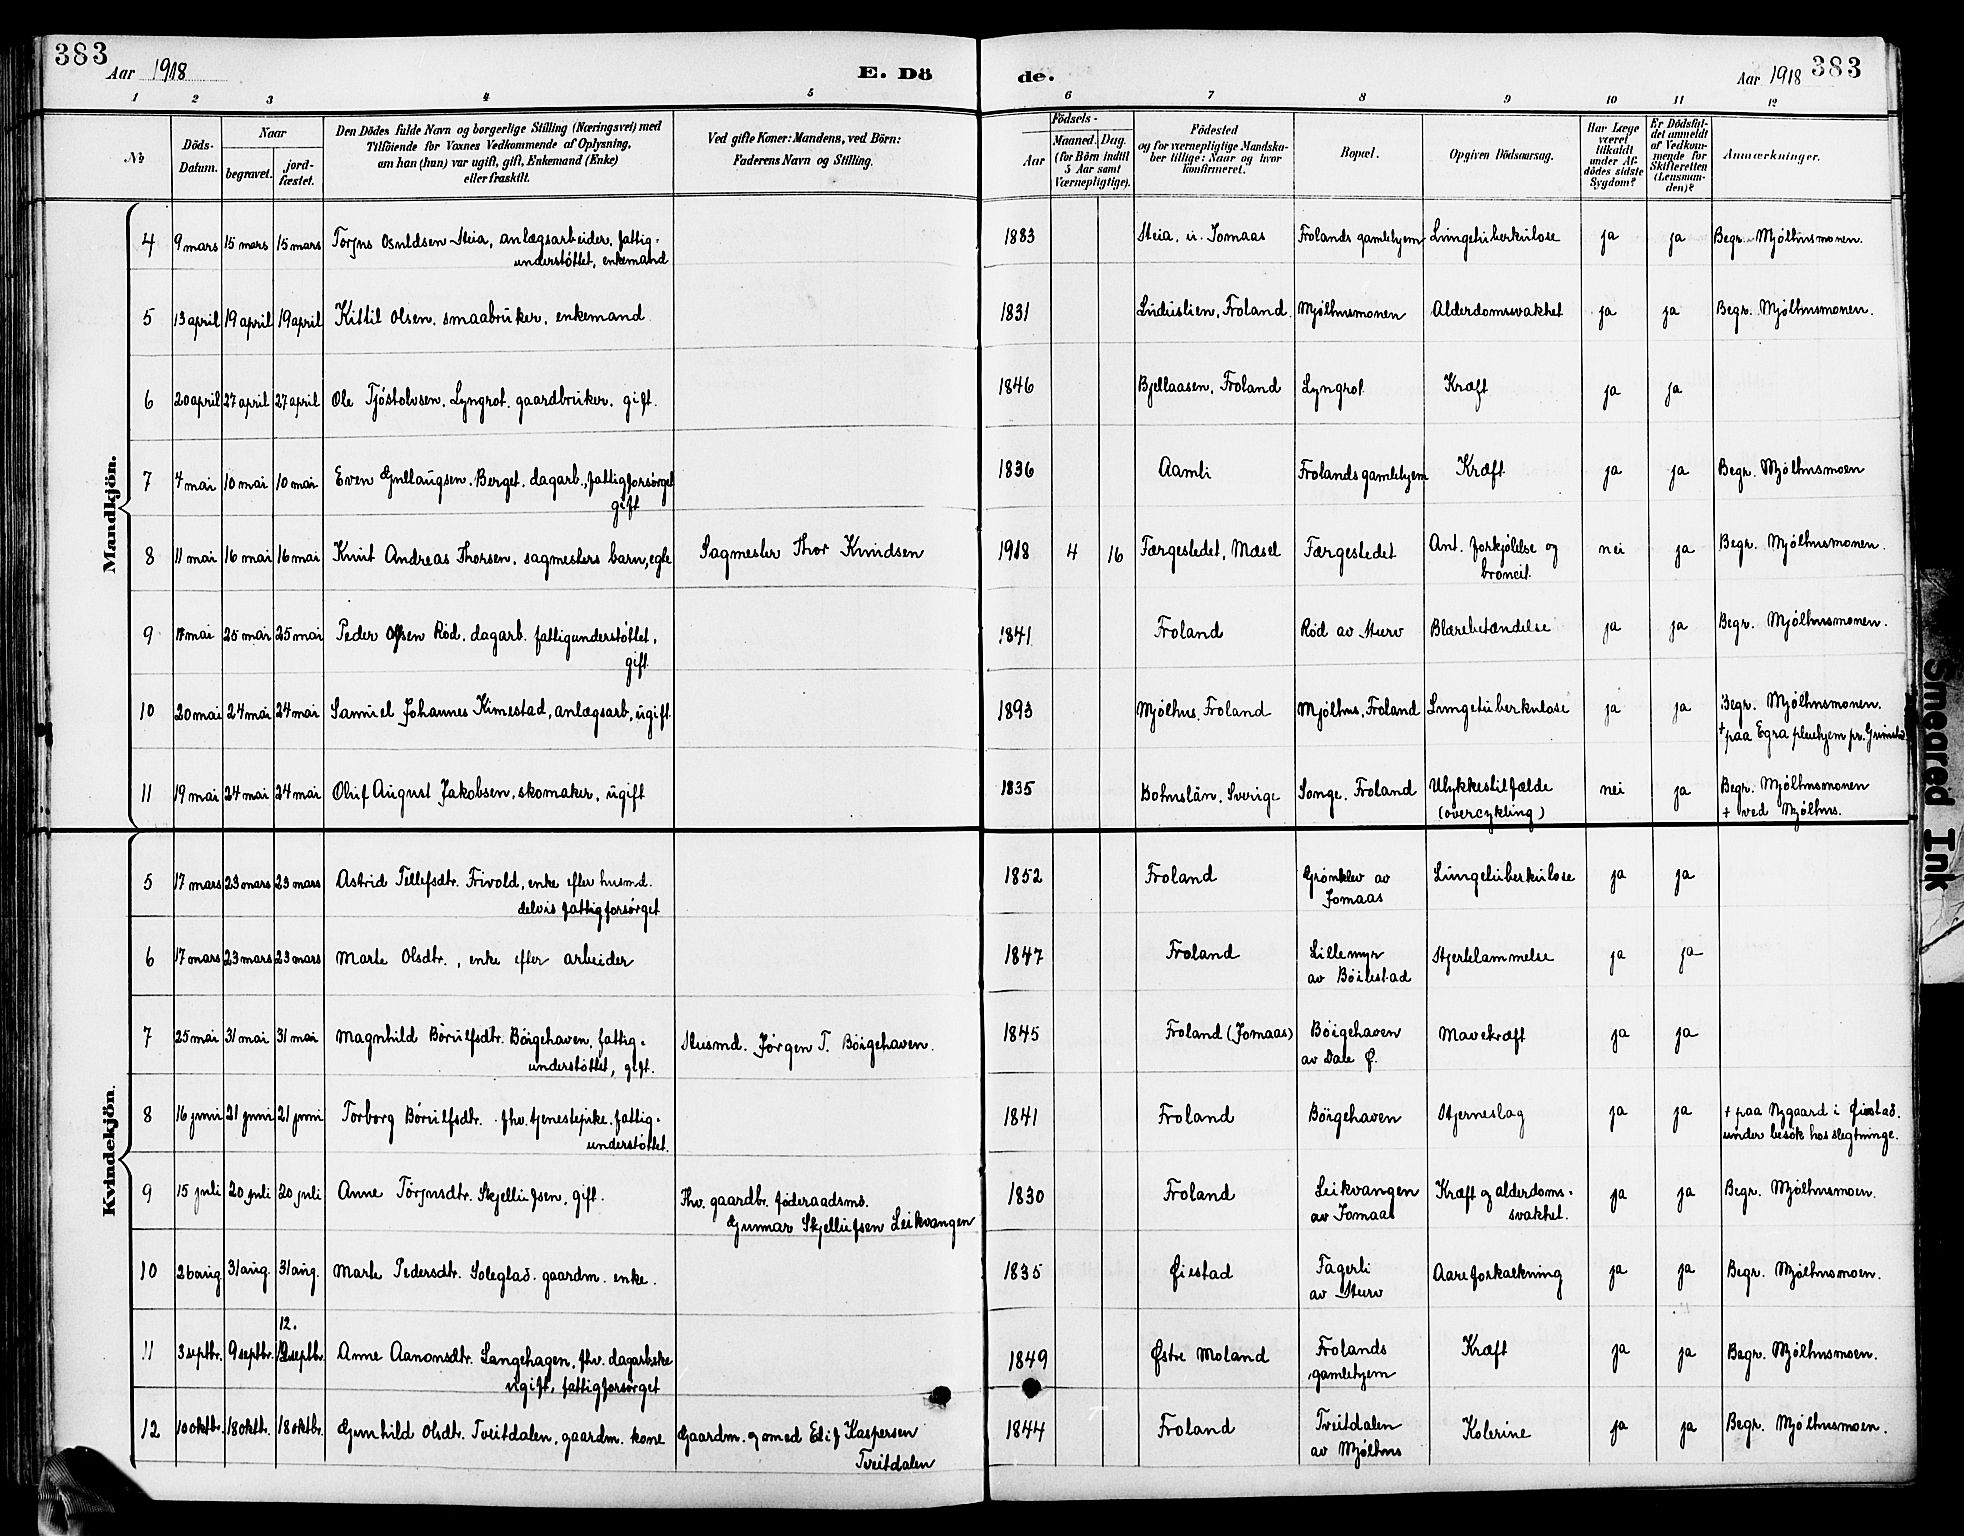 383
Aar 1918
E. Dö
de.
Aar 1918
383
1 2 3 4 5 6 7 8 9 10 11 12
№ Döds-Datum. Naar begravet. jordfæstet. Den Dödes fulde Navn og borgerlige Stilling (Næringsvei) med Tilföiende for Voxnes Vedkommende af Oplysning, om han (hun) var ugift, gift, Enkemand (Enke) eller fraskilt. Ved gifte Koner: Mandens, ved Börn: Faderens Navn og Stilling. Födsels- Aar Maaned. Dag. (for Börn indtil 5 Aar samt Værnepligtige). Födested og for værnepligtige Mandskaber tillige: Naar og hvor konfirmeret. Bopæl. Opgiven Dödsaarsag. Har Læge været tilkaldt under Afdödes sidste Sygdom? Er Dödsfaldet anmeldt af Vedkommende for Skifteretten (Lensmanden)? Anmærkninger.
Mandkjön.
4 9 mars 15 mars 15 mars Torjus Osuldsen Heia, anlægsarbeider, fattig-understöttet, enkemand 1883 Heia, u. Jomaas Frolands gamlehjem Lungetuberkulose ja ja Begr. Mjölhusmonen.
5 13 april 19 april 19 april Kittil Olsen, smaabruker, enkemand 1831 Luduslien, Froland. Mjölhusmonen Alderdomssvakhet ja ja Begr. Mjölhusmonen.
6 20 april 27 april 27 april Ole Tjöstolvsen, Lyngrot. gaardbruker. gift. 1846 Bjellaasen, Froland Lyngrot Kræft ja ja
7 4 mai 10 mai 10 mai Even Gullaugsen. Berget. dagarb., fattigforsörget gift 1836 Aamli Frolands gamlehjem Kræft ja ja Begr. Mjölhusmoen
8 11 mai 16 mai 16 mai Knut Andreas Thorsen, sagmesters barn, egte Sagmester Thor Knudsen 1918 4 16 Færgestedet, Mæsel Færgestedet Ant. forkjölelse og broncit. nei ja Begr. Mjölhusmonen.
9 mai 25 mai 25 mai Peder Olsen Röd. dagarb. fattigunderstöttet, gift 1841 Froland Röd av Hurv Blærebetændelse ja ja Begr. Mjölhusmonen.
10 20 mai 24 mai 24 mai Samuel Johannes Kimestad, anlægsarb, ugift. 1893 Mjölhus, Froland Mjölhus, Froland Lungetuberkulose ja ja Begr. Mjölhusmonen. + paa Egra pleiehjem pr. Grimstad
11 19 mai 24 mai 24 mai Oluf August Jakobsen, skomaker, ugift 1835 Bohuslän, Sverige Songe, Froland Ulykkestilfælde (overcykling) nei ja Begr. Mjölhusmonen + ved Mjölhus.
Kvindekjön.
5 17 mars 23 mars 23 mars Astrid Tellefsdtr. Frivold, enke efter husmd. delvis fattigforsörget 1852 Froland Grönklev av Jomaas Lungetuberkulose ja ja
6 17 mars 23 mars 23 mars Marte Olsdtr., enke efter arbeider 1847 Froland Lillemyr av Böilestad Hjertelammelse ja ja
7 25 mai 31 mai 31 mai Magnhild Börulfsdtr. Böigehaven, fattig-understöttet, gift. Husmd. Jörgen T. Böigehaven. 1845 Froland (Jomaas) Böigehaven av Dale Ø. Mavekræft ja ja
8 16 juni 21 juni 21 juni Torborg Börulfsdtr. fhv. tjenestepike. fattig-understöttet. 1841 Froland Böigehaven Hjerneslag ja ja + paa Nygaard i Øiestad. under besök hos slegtninge.
9 15 juli 20 juli 20 juli Anne Törjusdtr. Skjellufsen, gift. Fhv. gaardbr. föderaadsmd. Gunnar Skjellufsen Leikvangen 1830 Froland Leikvangen av Jomaas Kræft og alderdoms-svakhet. ja ja Begr. Mjölhusmoen.
10 26 aug 31 aug. 31 aug. Marte Pedersdtr. Soleglad. gaardm. enke. 1835 Øiestad Fagerli av Hurv Aareforkalkning ja ja Begr. Mjölhusmoen.
11 3 septbr. 9 septbr. 12. septbr. Anne Aanonsdtr. Langehagen, fhv. dagarbske ugift, fattigforsörget 1849 Østre Moland Frolands gamlehjem Kræft ja ja Begr. Mjölhusmoen.
12 10 oktbr. 18 oktbr. 18 oktbr. Gunhild Olsdtr. Tveitdalen, gaardm. kone Gaardm. og omed Elif Kaspersen Tveitdalen 1844 Froland Tveitdalen av Mjölhus Kolerine ja ja Begr. Mjölhusmoen.
Smeared Ink